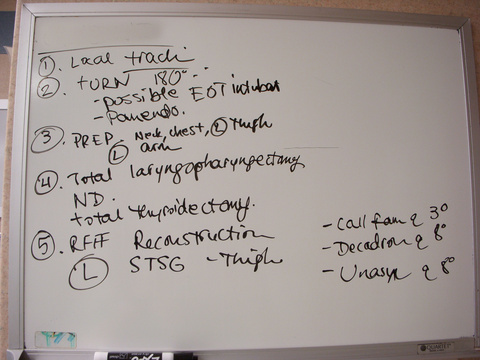 ① Local trach
② tURN 180°
- possible EOT intubat
- Panendo.
③ PREP - Neck, chest, Ⓛ Thigh
Ⓛ arm
④ Total laryngopharyngectomy
ND.
total thyroidectomy.
⑤ RFF Reconstruction
Ⓛ STSG - Thigh
- Call fam q 3°
- Decadron q 8°
- Unasyn q 8°
QUARTET